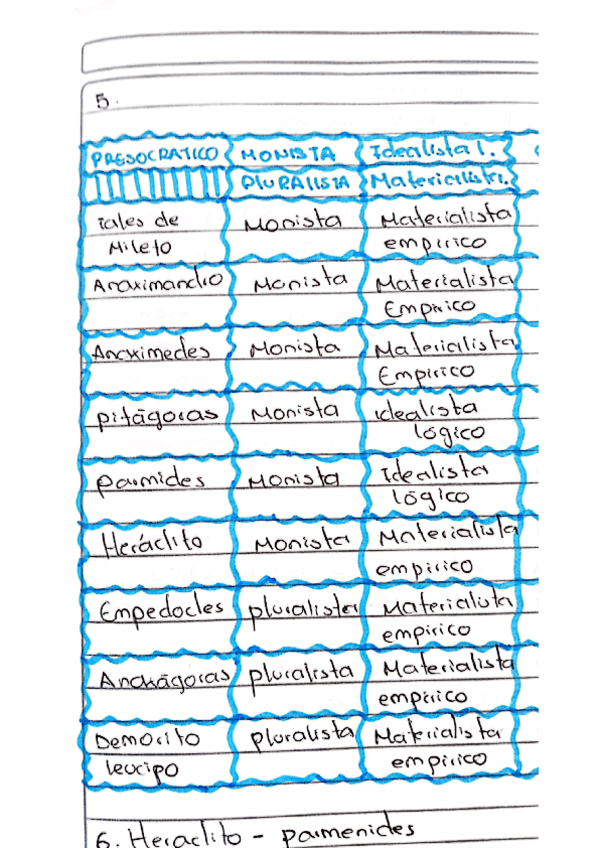 5.
PRESOCRATICO MONISTA Idealista l.
PLURALISTA Materialista.
Tales de Monista Materialista
Mileto empírico
Anaximandro Monista Materialista
Empírico
Anaximedes Monista Materialista
Empirico
pitágoras Monista idealista
lógico
parmides Monista Idealista
lógico
Heráclito Monista Materialista
empírico
Empedocles pluralista Materialista
empírico
Anaxágoras pluralista Materialista
empírico
Demorito pluralista Materialista
leucipo empírico
6. Heraclito - parmenides